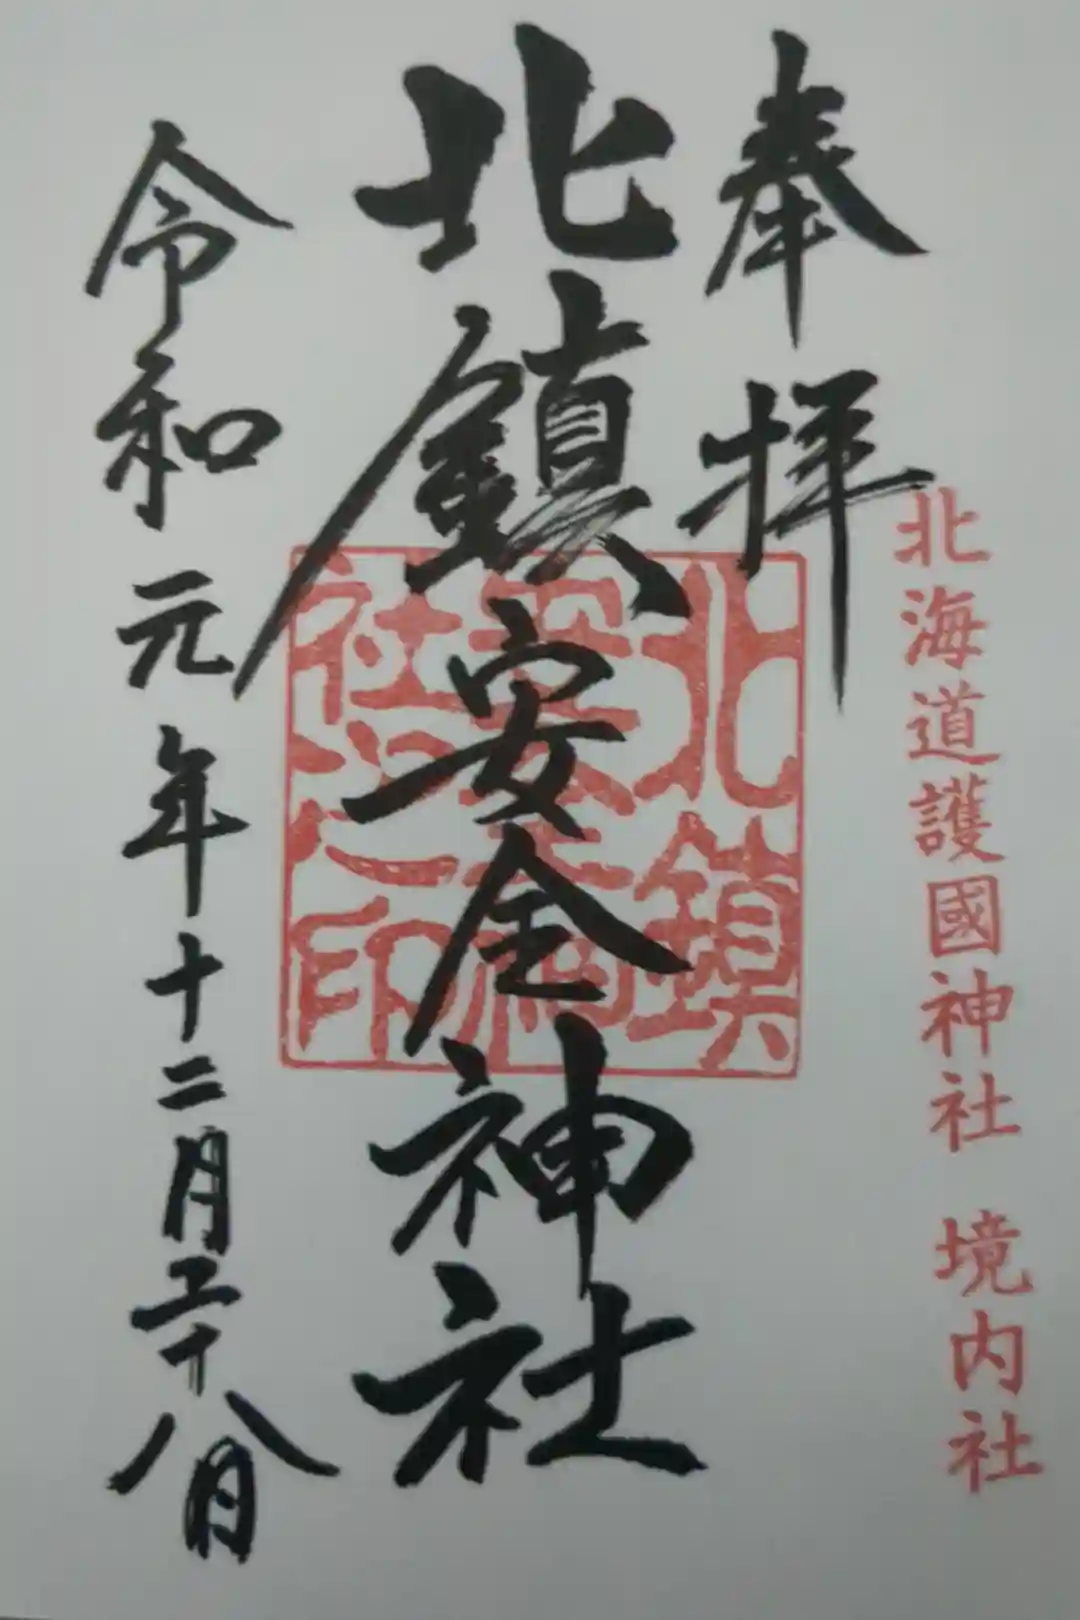 北海道護國神社 境内社
奉拝
北鎮安全神社
北鎮
安全神
社之印
令和元年十二月二十八日